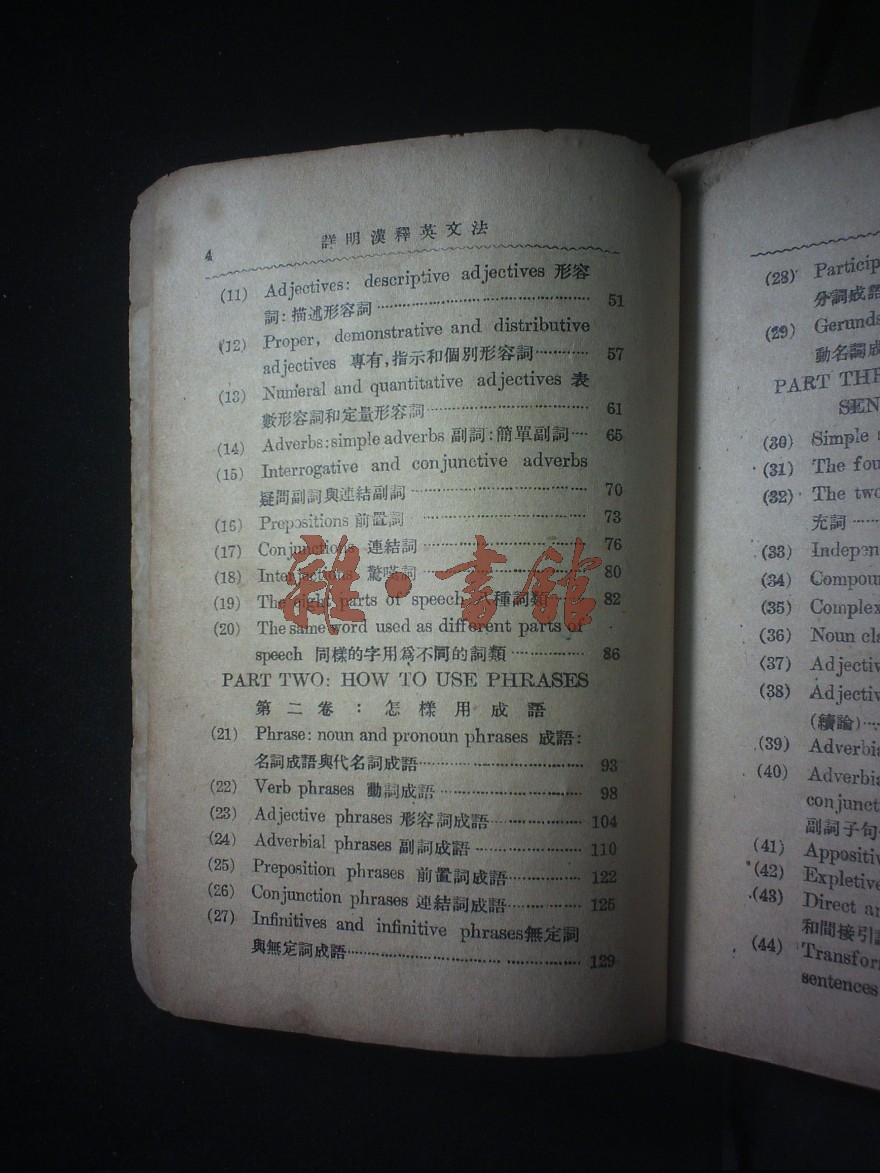 4
詳明漢釋英文法
(11) Adjectives: descriptive adjectives 形容
詞:描述形容詞 51
(12) Proper, demonstrative and distributive
adjectives 專有,指示和個別形容詞 57
(13) Numeral and quantitative adjectives 表
數形容詞和定量形容詞 61
(14) Adverbs:simple adverbs 副詞:簡單副詞 65
(15) Interrogative and conjunctive adverbs
疑問副詞與連結副詞 70
(16) Prepositions 前置詞 73
(17) Conjunctions 連結詞 76
(18) Interjections 驚嘆詞 80
(19) The eight parts of speech 八種詞類 82
(20) The same word used as different parts of
speech 同樣的字用爲不同的詞類 86
PART TWO: HOW TO USE PHRASES
第二卷:怎樣用成語
(21) Phrase: noun and pronoun phrases 成語:
名詞成語與代名詞成語 93
(22) Verb phrases 動詞成語 98
(23) Adjective phrases 形容詞成語 104
(24) Adverbial phrases 副詞成語 110
(25) Preposition phrases 前置詞成語 122
(26) Conjunction phrases 連結詞成語 125
(27) Infinitives and infinitive phrases無定詞
與無定詞成語 129
雜·書館
(28) Particip
分詞成語
(29) Gerunds
動名詞成
PART THR
SEN
(30) Simple
(31) The fou
(32) The two
充詞
(33) Indepen
(34) Compou
(35) Complex
(36) Noun cla
(37) Adjectiv
(38) Adjectiv
(續論)
(39) Adverbi
(40) Adverbia
conjunct
副詞子句
(41) Appositiv
(42) Expletive
(43) Direct an
和間接引
(44) Transfor
sentences